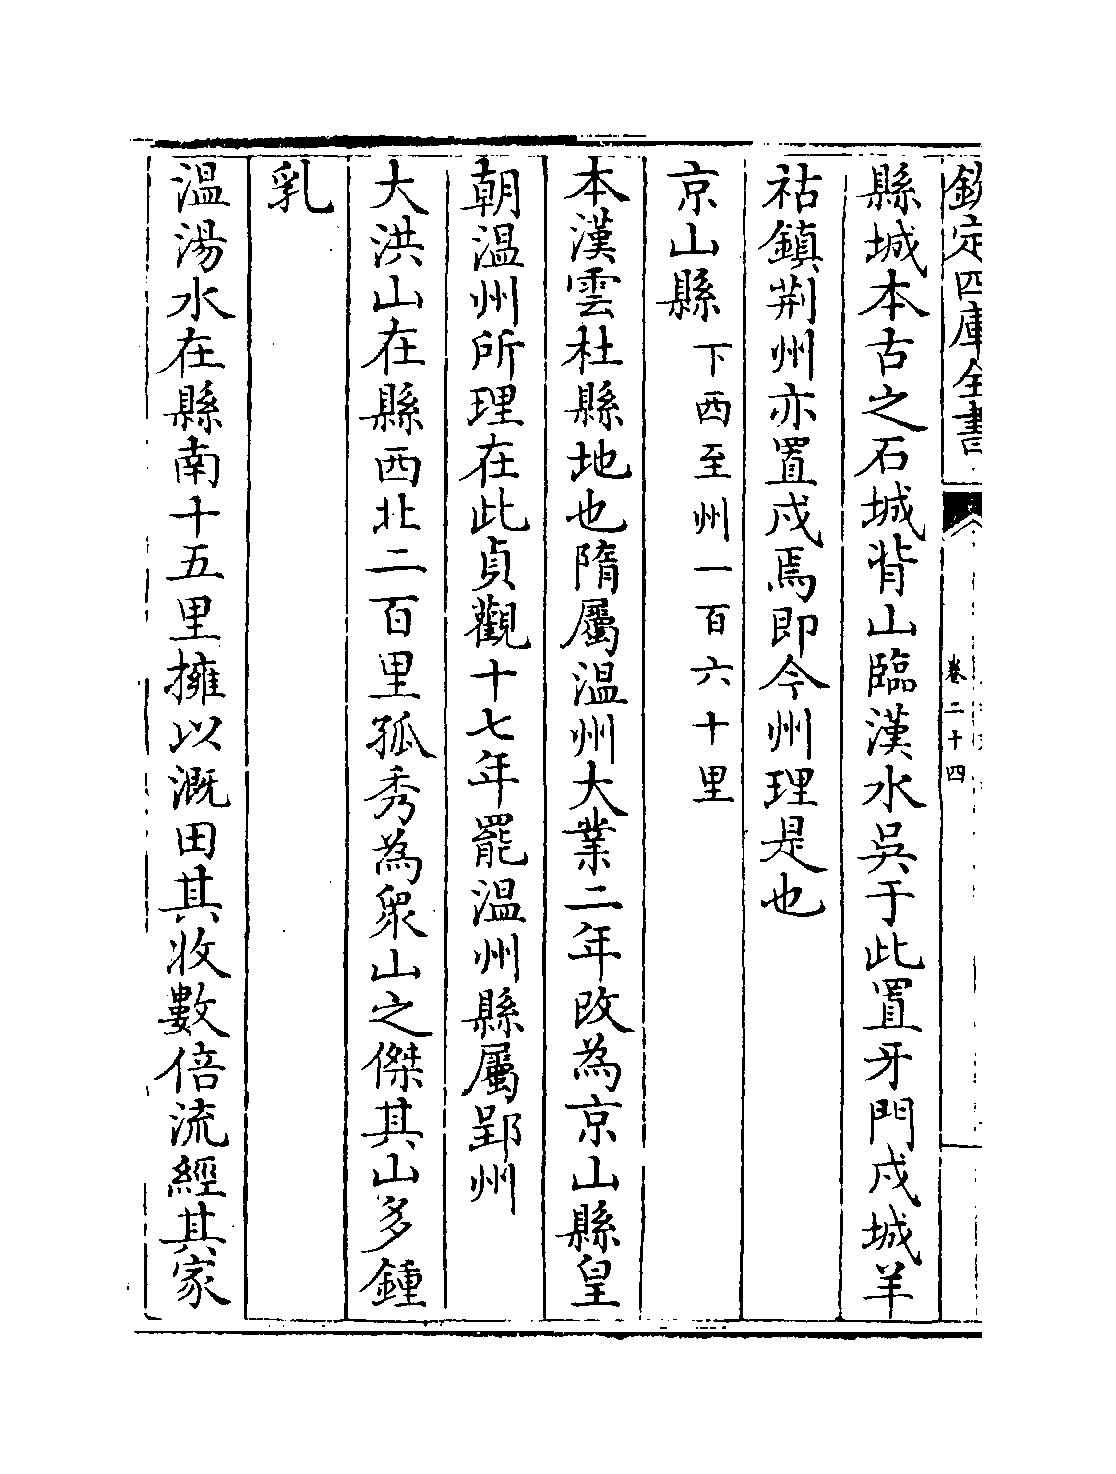 欽定四庫全書
卷二十四
縣城本古之石城背山臨漢水吳于此置牙門戍城羊
祜鎮荆州亦置戍焉即今州理是也
京山縣下西至州一百六十里
本漢雲杜縣地也隋屬溫州大業二年改為京山縣皇
朝溫州所理在此貞觀十七年罷溫州縣屬郢州
大洪山在縣西北二百里孤秀為衆山之傑其山多鍾
乳
溫湯水在縣南十五里擁以溉田其收數倍流經其家